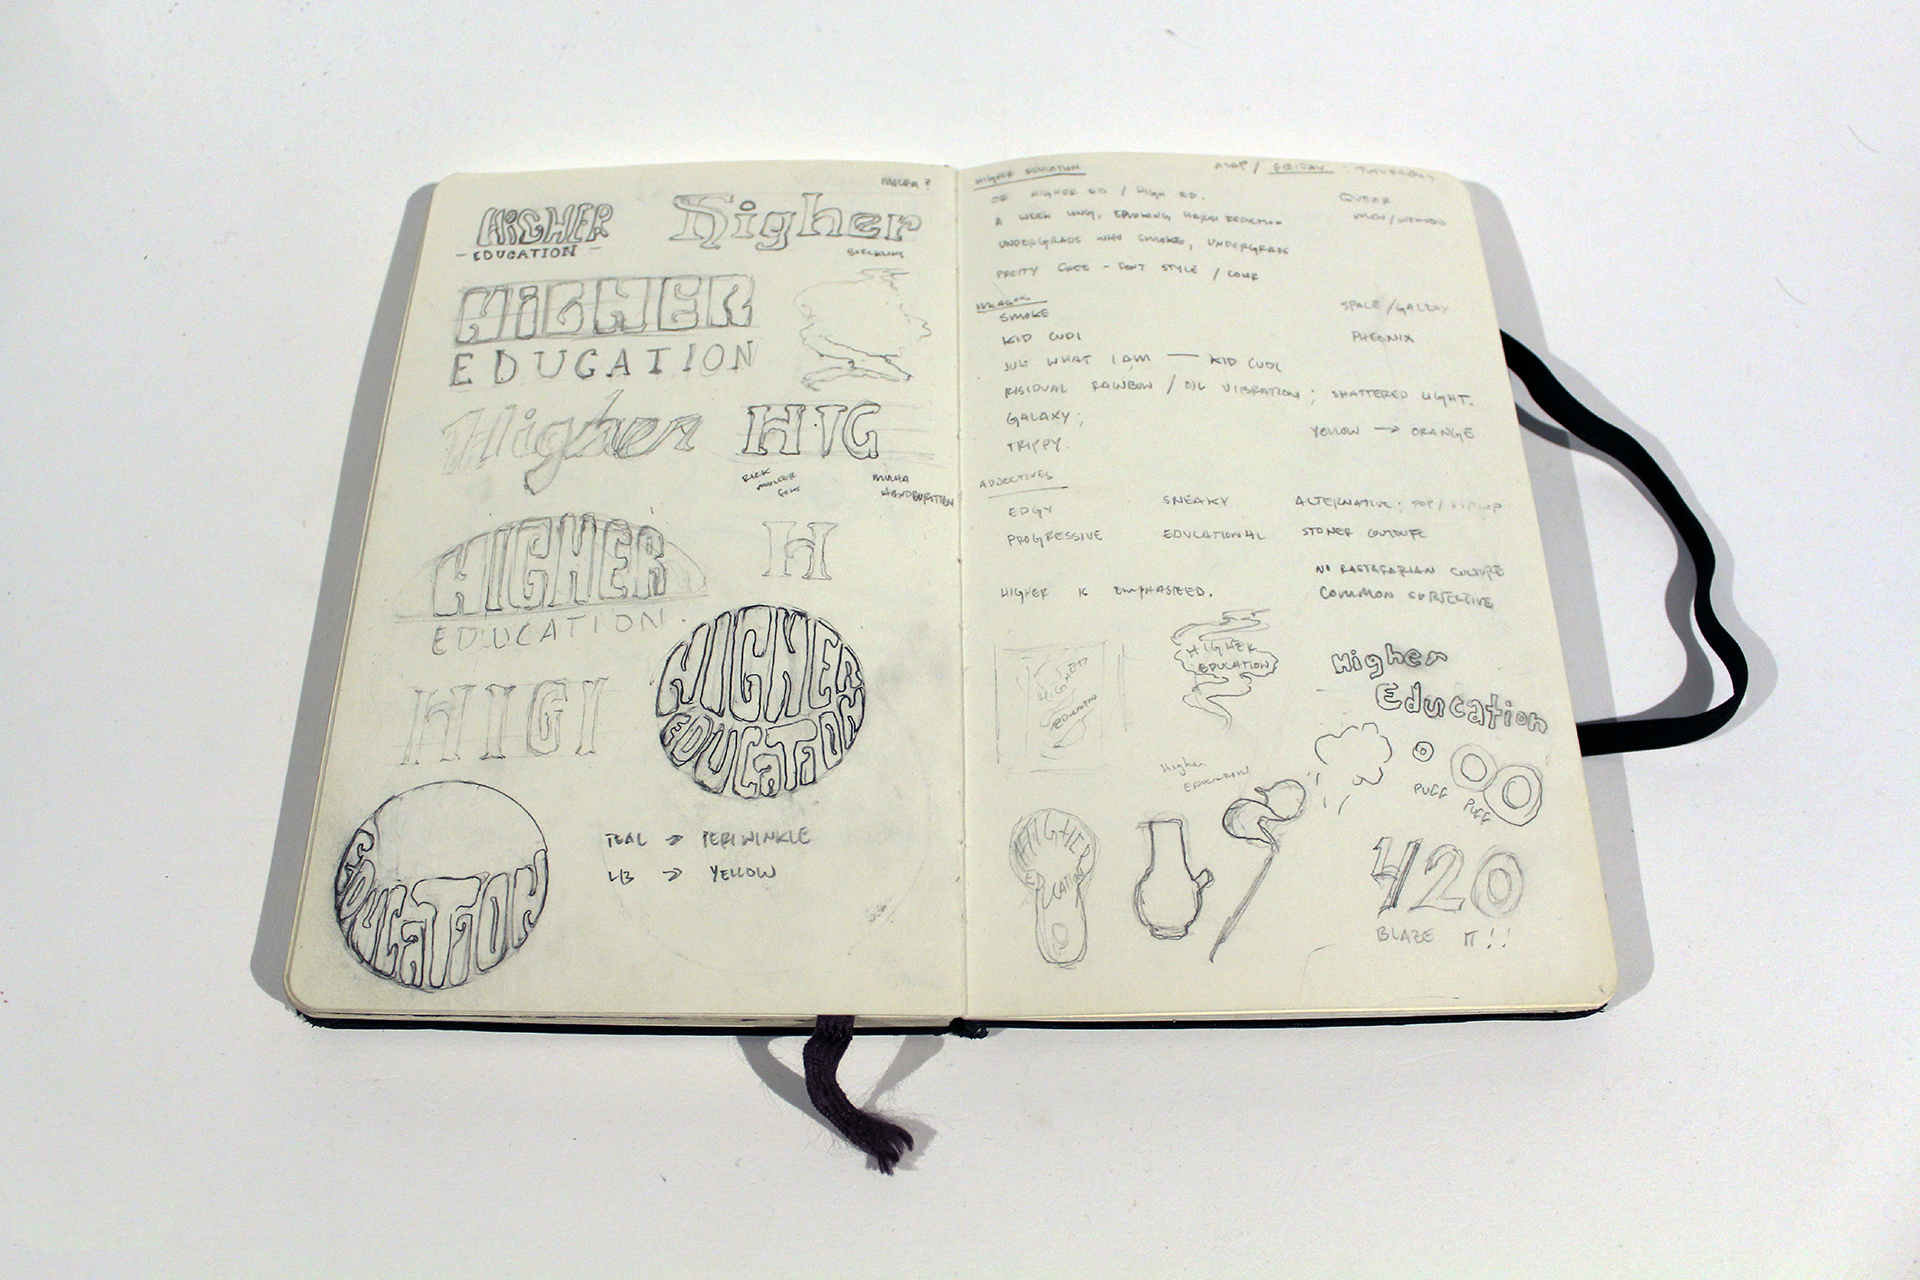 HIGHER
- EDUCATION -
Higher
HIGHER
EDUCATION
Higher
HIG
RICK
FONT
MUCHA
HIGHER
EDUCATION.
H
HIGHER
EDUCATION
HIGI
EDUCATION
TEAL → PERIWINKLE
→ YELLOW
HIGHER EDUCATION
ASAP / FRIDAY THURSDAY
OR HIGHER ED / HIGH ED.
QUEER
A WEEK LONG, HARM REDUCTION
MEN/WOMEN
UNDERGRADS WHO SMOKE, UNDERGRADS
PRETTY FREE - FONT STYLE / COLOR
IMAGES
SMOKE
SPACE/GALAXY
KID CUDI
PHEONIX
JUST WHAT I AM — KID CUDI
RISIDUAL RAINBOW / OIL VIBRATION ; SHATTERED LIGHT.
GALAXY;
YELLOW → ORANGE
TRIPPY.
ADJECTIVES
EDGY
SNEAKY
ALTERNATIVE; POP/
PROGRESSIVE
EDUCATIONAL
STONER
NO RASTAFARIAN CULTURE
HIGHER IS EMPHASIZED.
COMMON
HIGHER
EDUCATION
HIGHER
EDUCATION
Higher
Education
Higher
EDUCATION
PUFF
PUFF
HIGHER
EDUCATION
420
BLAZE IT!!